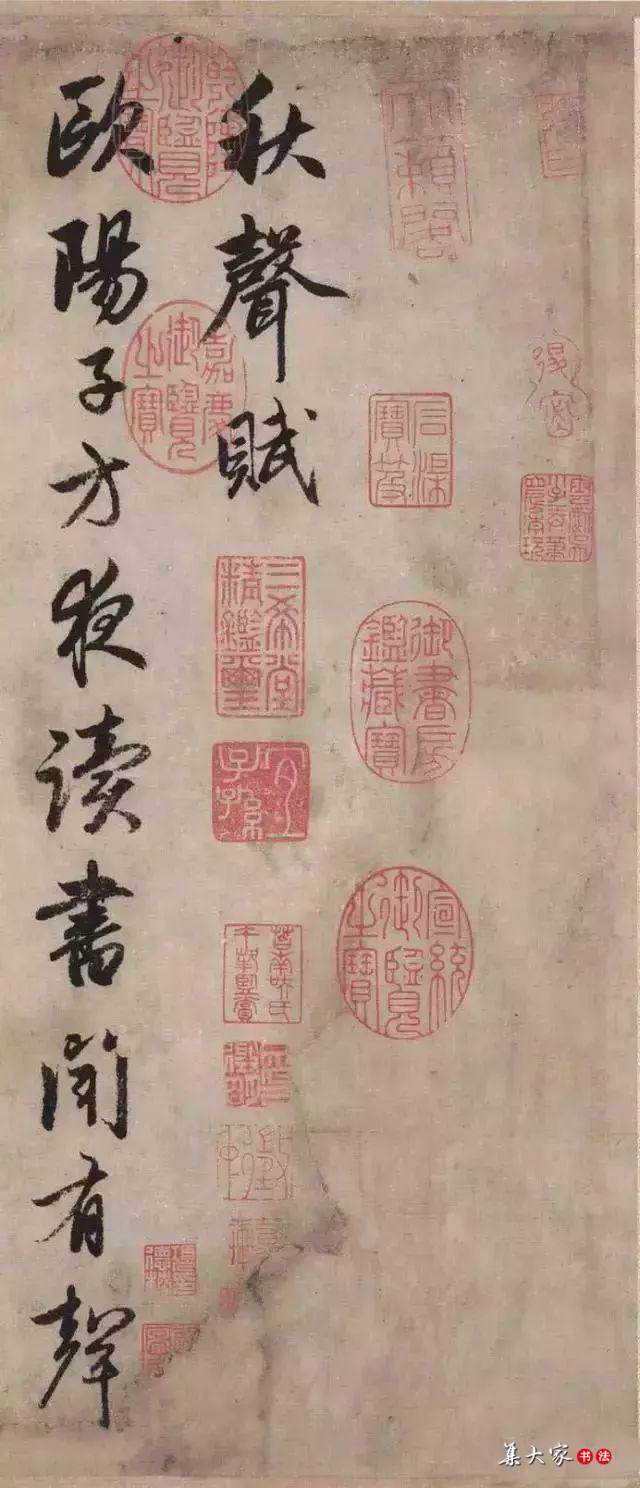 天籟閣
石渠寶笈
御書房鑑藏寶
宣統御覽之寶
秋聲賦
三希堂精鑑璽
宜子孫
乾隆御覽之寶
嘉慶御覽之寶
歐陽子方夜讀書聞有聲
集大家书法